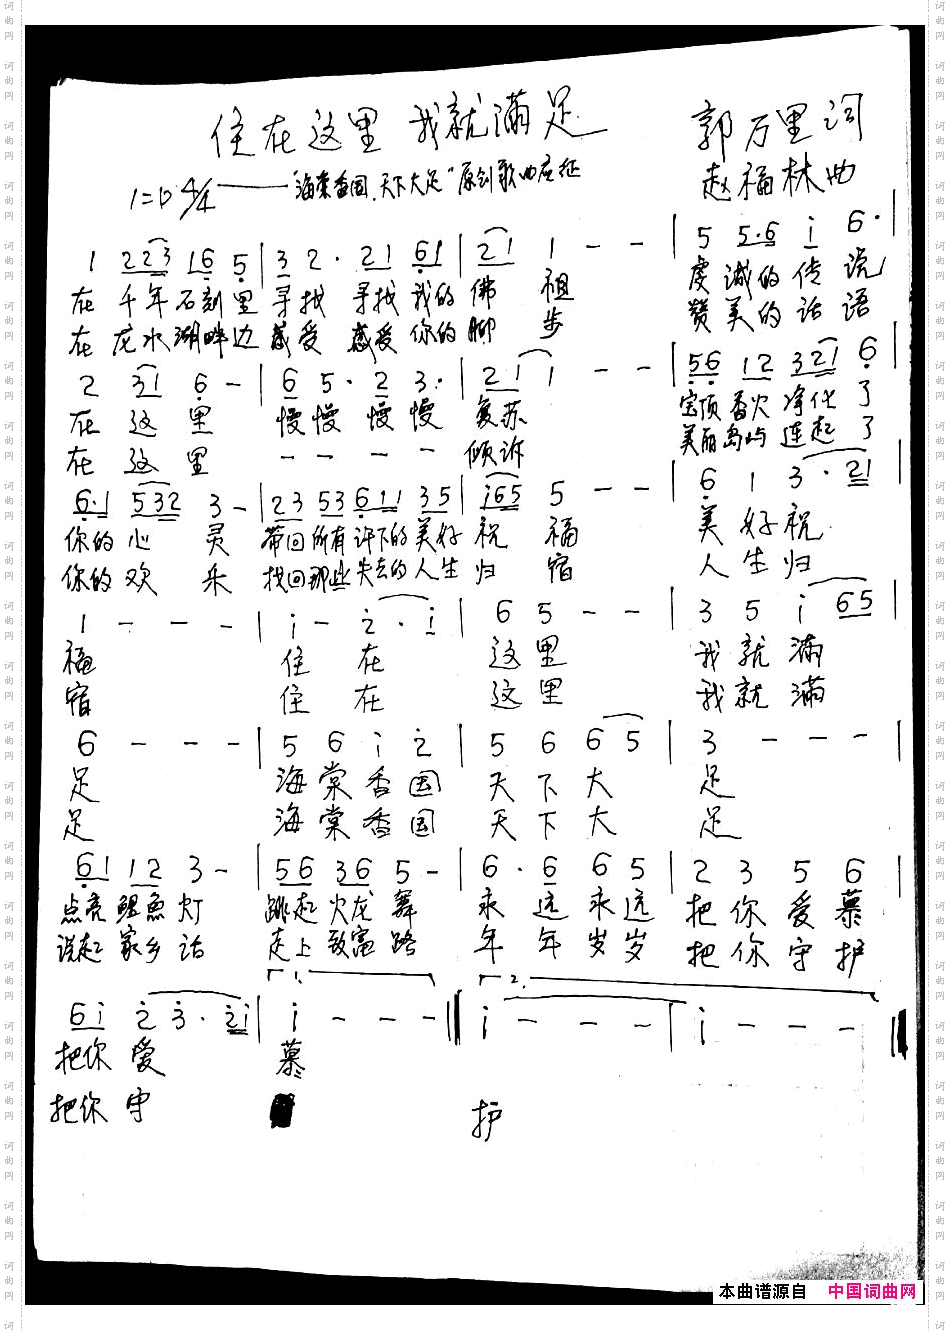 住在这里 我就满足
郭万里词
1=D 4/4 ——"海棠香国,天下大足"原创歌曲应征
赵福林曲
1 2 2 3 1 6 5 | 3 2 · 2 1 6 1 | 2 1 1 - - | 5 5 · 6 i 6 · |
在 千年石刻里 寻找 寻找我的佛 祖 虔诚的传说
在 龙水湖畔边 感受 感受你的脚 步 赞美的话语
2 3 1 6 - | 6 5 · 2 3 · | 2 1 1 - - | 5 6 1 2 3 2 1 6 |
在 这 里 慢慢 慢慢 复苏 宝顶香火净化了
在 这 里 - - - - 倾诉 美丽岛屿连起了
6 · 1 5 3 2 3 - | 2 3 5 3 6 1 1 3 5 | i 6 5 5 - - | 6 1 3 · 2 1 |
你的心 灵 带回所有许下的美好祝 福 美好祝
你的欢 乐 找回那些失去的人生归 宿 人生归
1 - - - | i - 2 · i | 6 5 - - | 3 5 i 6 5 |
福 住 在 这里 我就满
宿 住 在 这里 我就满
6 - - - | 5 6 i 2 | 5 6 6 5 | 3 - - - |
足 海棠香国 天下大 足
足 海棠香国 天下大 足
6 1 1 2 3 - | 5 6 3 6 5 - | 6 · 6 6 5 | 2 3 5 6 |
点亮鲤鱼灯 跳起火龙舞 永远永远 把你爱慕
说起家乡话 走上致富路 年年岁岁 把你守护
1. 2.
6 i 2 3 · 2 i | i - - - | i - - - | i - - - |
把你爱 慕
把你守 护
本曲谱源自 中国词曲网
词曲网